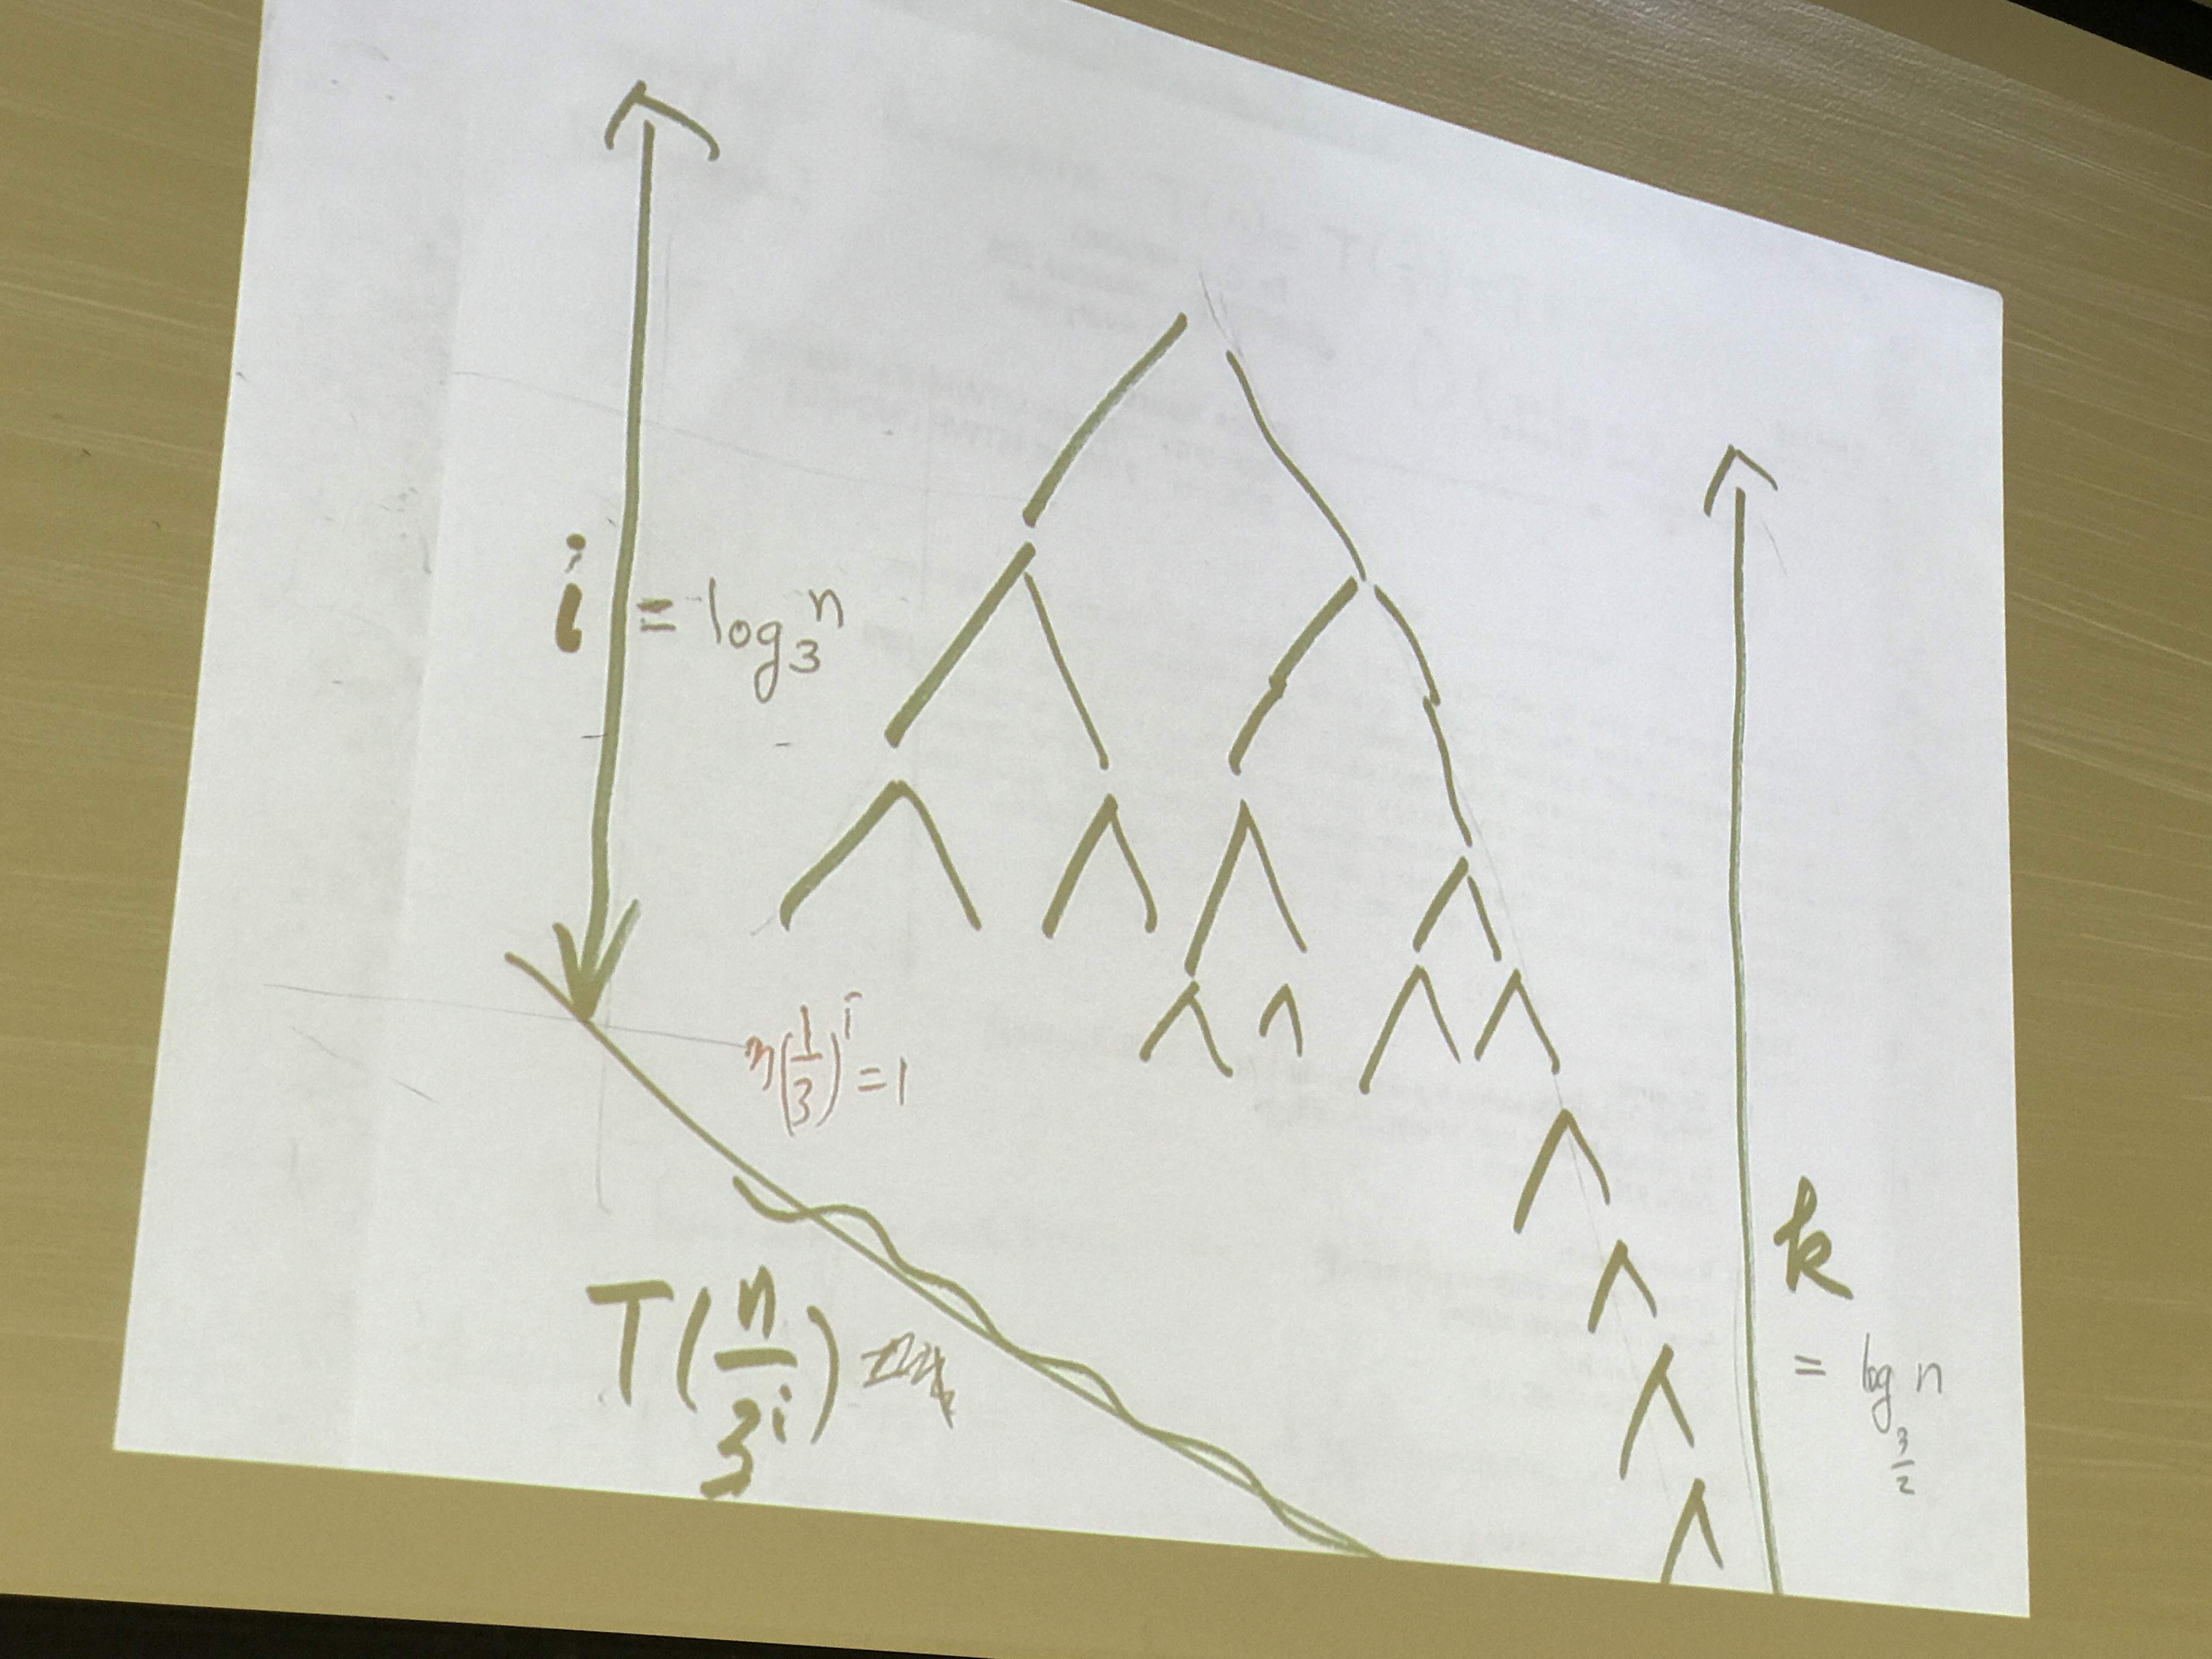 i = log₃ n
n(1/3)^i = 1
T(n/3^i)
k
= log_{3/2} n